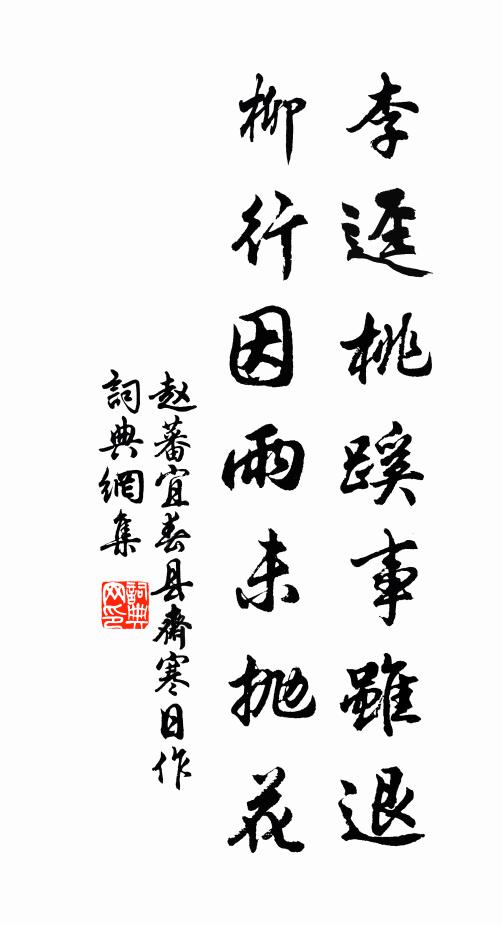 李逕桃蹊事雖退
柳行因雨未抛花
赵蕃宜春县齋寒日作
詞典網集
詞典网印